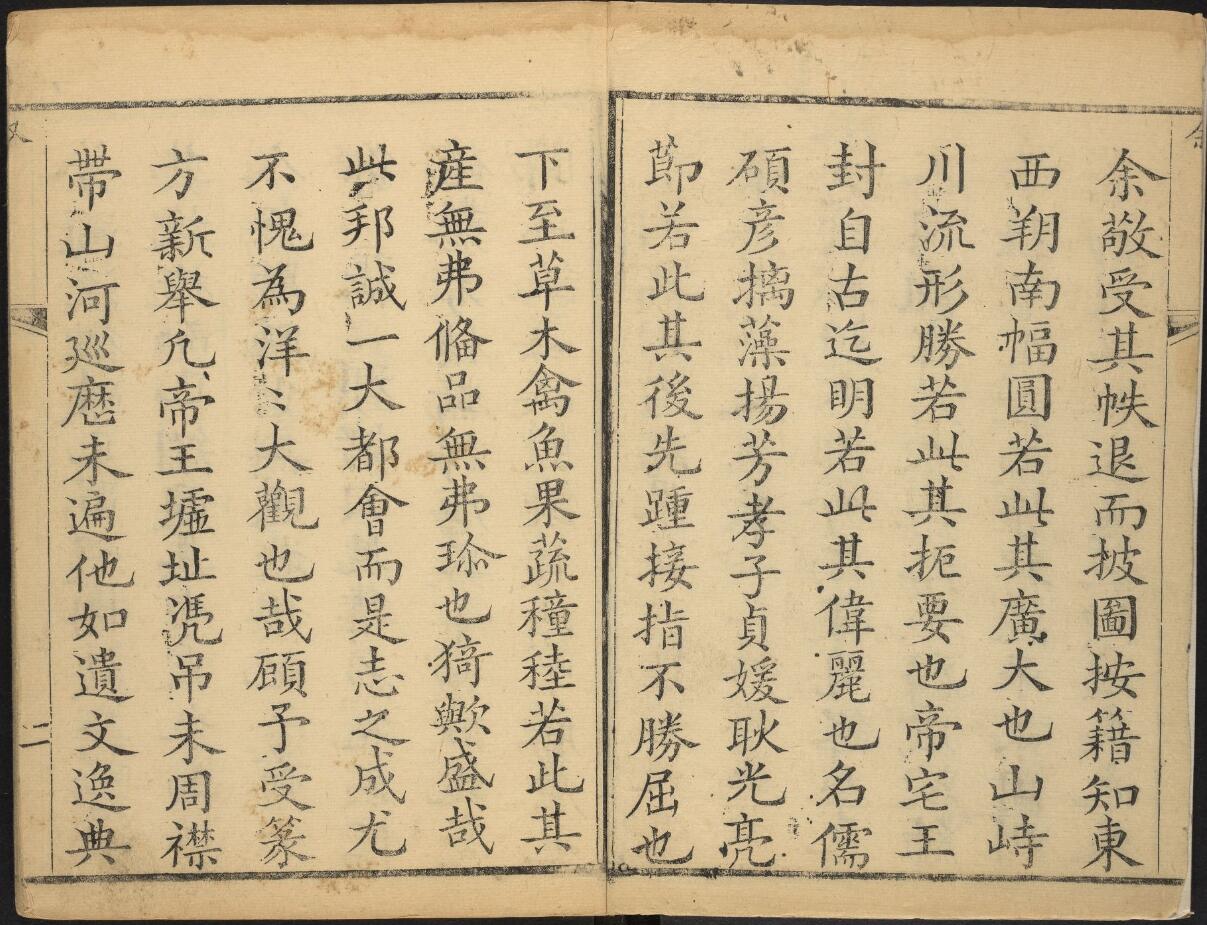 余敬受其帙退而披圖按籍知東
西朔南幅圓若此其廣大也山峙
川流形勝若此其扼要也帝宅王
封自古迄明若此其偉麗也名儒
碩彦摛藻揚芳孝子貞媛耿光亮
節若此其後先踵接指不勝屈也
下至草木禽魚果蔬穜稑若此其
産無弗俻品無弗珍也猗歟盛哉
此邦誠一大都會而是志之成尤
不愧為洋〻大觀也哉顧予受篆
方新舉凢帝王墟址凴吊未周襟
帶山河廵歴未遍他如遺文逸典
二